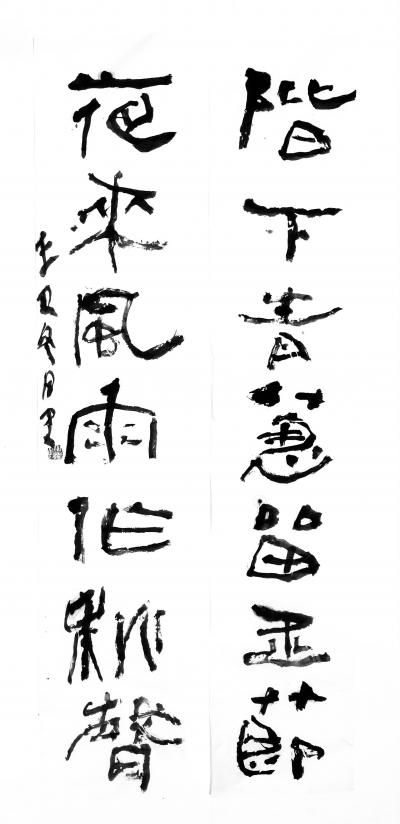 階下青蔥留玉節
夜來風雨作新聲
辛丑冬月